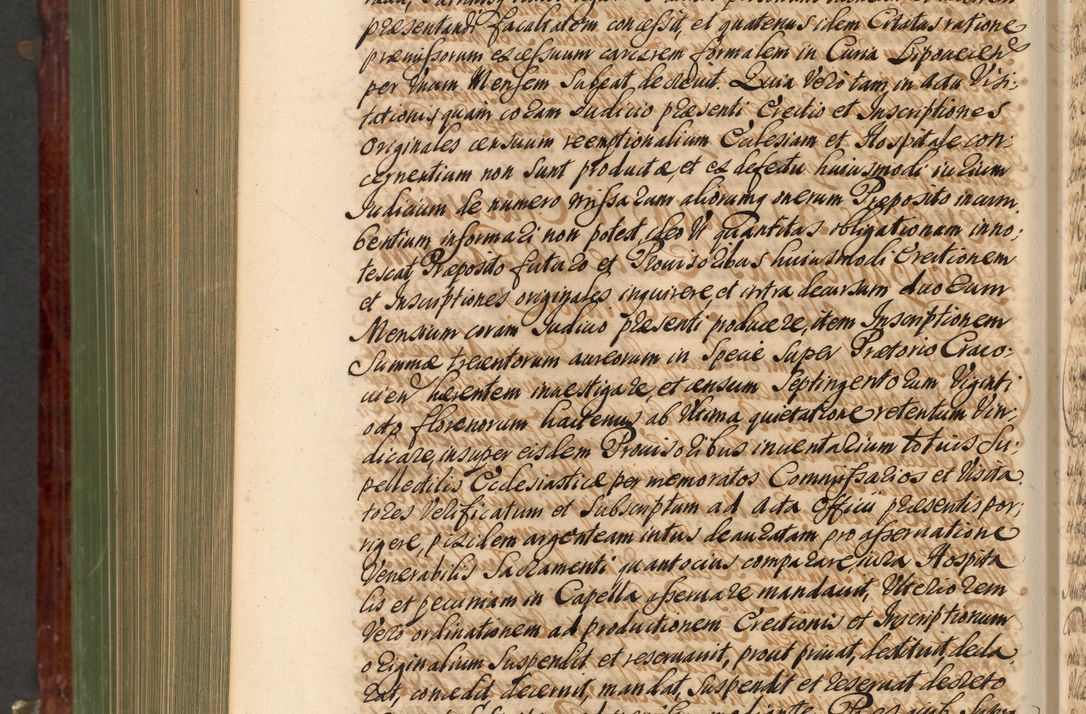 præsentandi facultatem concessit, et quatenus idem Citatus ratione
præmissorum excessuum carcerem formalem in Curia Lipovecen
per Unum Mensem Subeat decrevit. Quia Vero tam in Acta Visi-
tationis, quam coram Judicio præsenti Erectio et Inscriptiones
Originales censuum reemptionalium Ecclesiam et Hospitale con-
cernentium non Sunt productæ, et ex defectu huiusmodi iurium
Judicium de numero missarum aliorumq onerum Præposito incum-
bentium informari non potest, ideo Ut quantitas obligationum inno-
tescat Præposito futuro et Provisoribus huiusmodi Erectionem
et Inscriptiones originales inquirere, et intra decursum duorum
Mensium coram Judicio præsenti producere, item Inscriptionem
Summæ trecentorum aureorum in Specie Super Prætorio Craco-
vien hærentem investigare, et censum Septingentorum Viginti
octo florenorum hactenus ab Ultima quietatione retentum Vin-
dicare, insuper eisdem Provisoribus inventarium totius Su-
pellectilis Ecclesiasticæ per memoratos Commissarios et Visita
tores Verificatum et Subscriptum ad Acta Officii præsentis por-
rigere, pixidem argenteam intus deauratam pro asservatione
Venerabilis Sacramenti quantocius comparare, iura Hospita
lis et pecuniam in Capella asservare mandavit, Ulteriorem
Vero ordinationem ad productionem Erectionis et Inscriptionum
originalium Suspendit et reservavit, prout privat, destituit, decla
rat, concedit, decernit, mandat, Suspendit et reservat decreto